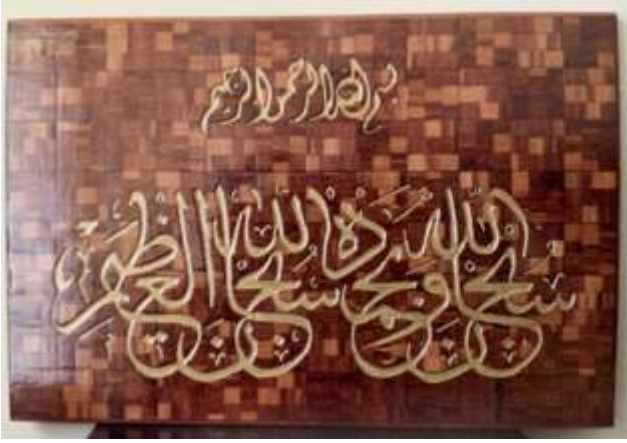 بسم الله الرحمن الرحيم
سبحان الله وبحمده سبحان الله العظيم